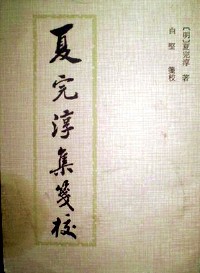 [明]夏完淳 著
白坚 笺校
夏完淳集箋校